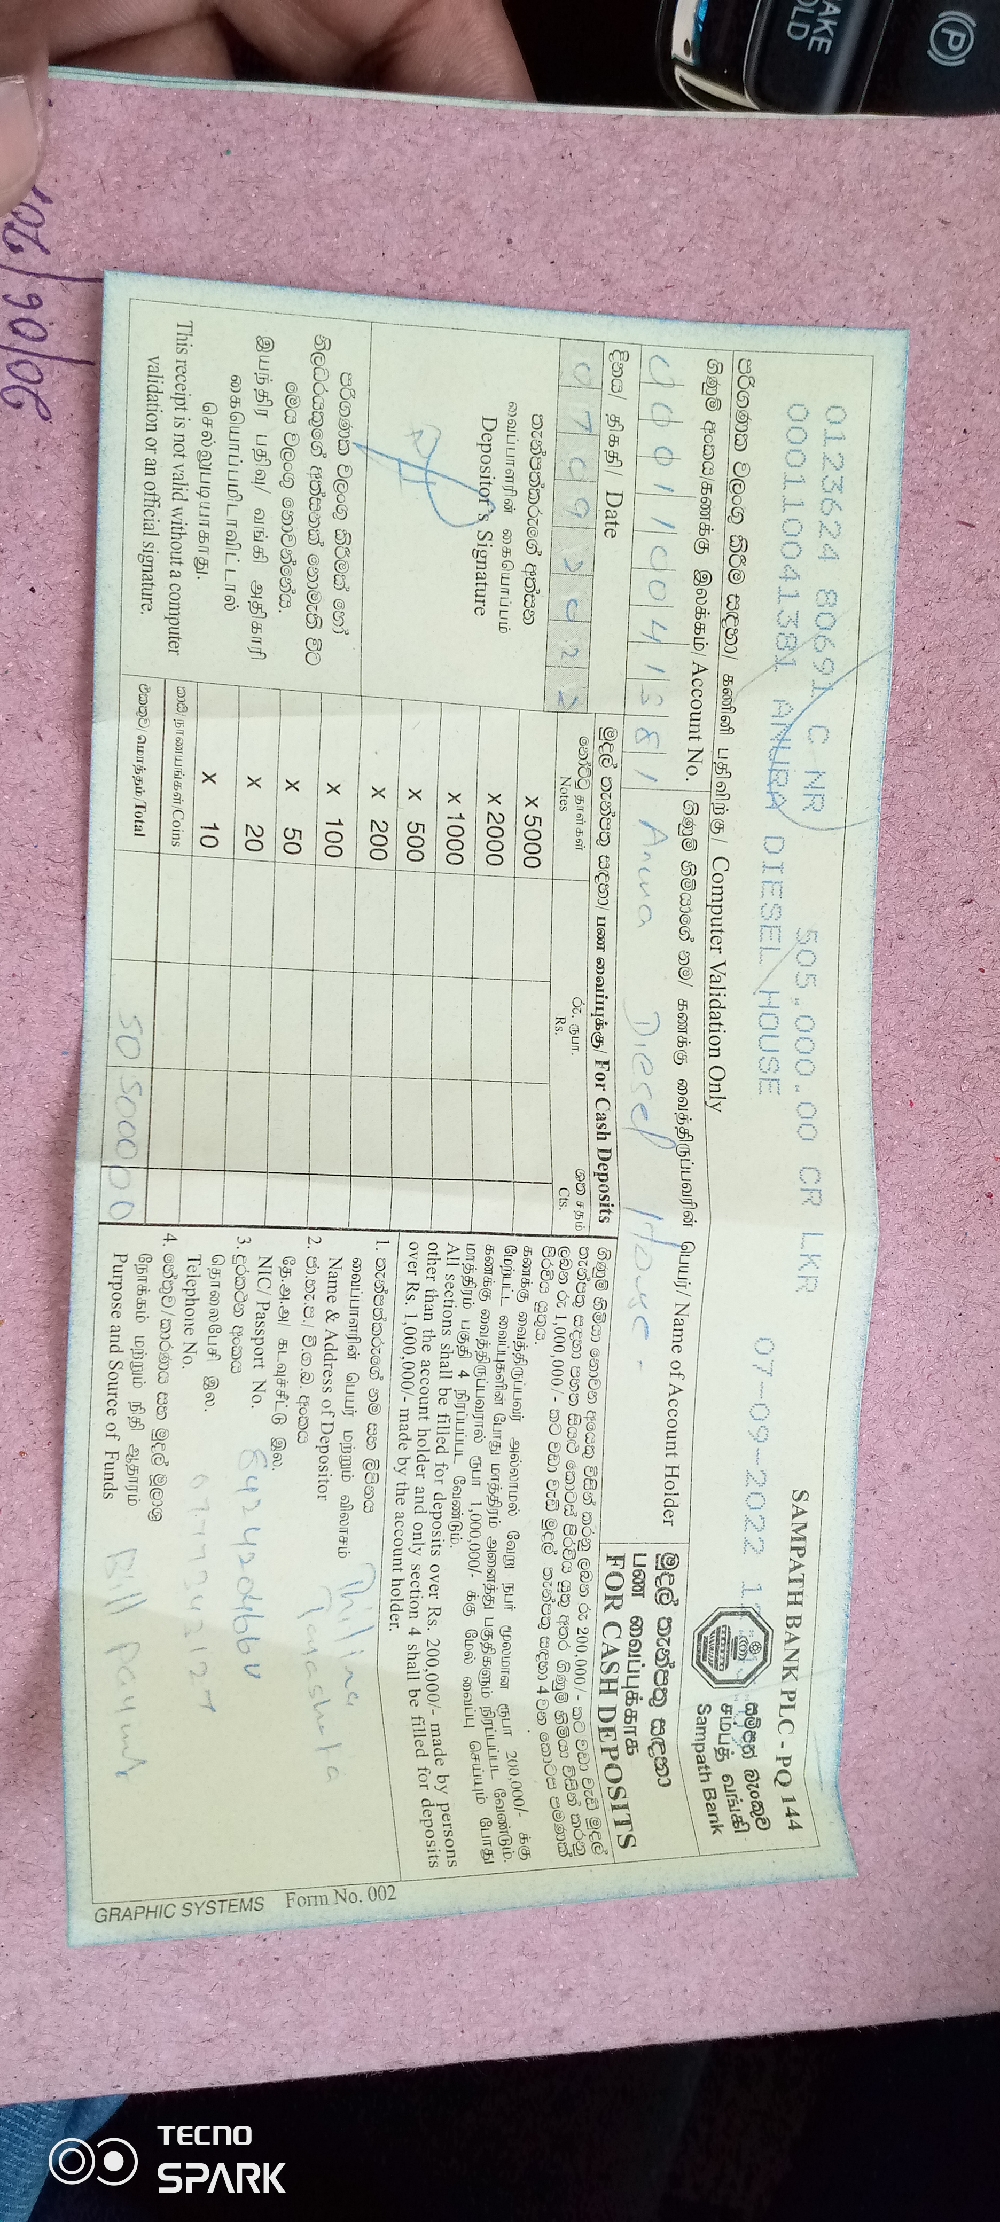 BRAKE
HOLD
(P)
SAMPATH BANK PLC - PQ 144
0123624 80691 C NR 505,000.00 CR LKR 07-09-2022
000110041381 ANURA DIESEL HOUSE
සම්පත් බැංකුව
சம்பத் வங்கி
Sampath Bank
පරිගණක වලංගු කිරීම සඳහා/ கணினி பதிவிற்கு/ Computer Validation Only
ගිණුම් අංකය/கணக்கு இலக்கம்/ Account No.
ගිණුම් හිමියාගේ නම/ கணக்கு வைத்திருப்பவரின் பெயர்/ Name of Account Holder
000110041381 Anura Diesel House -
මුදල් තැන්පතු සඳහා
பண வைப்புக்காக
FOR CASH DEPOSITS
දිනය/ திகதி/ Date
07092022
මුදල් තැන්පතු සඳහා/ பண வைப்புக்கு/ For Cash Deposits
නෝට්ටු தாள்கள் Notes
රු. ரூபா. Rs.
ශත சதம் Cts.
x 5000
x 2000
x 1000
x 500
x 200
x 100
x 50
x 20
x 10
කාසි/நாணயங்கள்/Coins
එකතුව/மொத்தம்/Total 505000 00
තැන්පත්කරුගේ අත්සන
வைப்பாளரின் கையொப்பம்
Depositor's Signature
පරිගණක වලංගු කිරීමක් හෝ
නිලධරයකුගේ අත්සනක් නොමැති විට
මෙය වලංගු නොවන්නේය.
இயந்திர பதிவு/ வங்கி அதிகாரி
கையொப்பமிடாவிட்டால்
செல்லுபடியாகாது.
This receipt is not valid without a computer
validation or an official signature.
ගිණුම් හිමියා නොවන අයෙකු විසින් කරනු ලබන රු 200,000/- කට වඩා වැඩි මුදල්
තැන්පතු සඳහා පහත සියලු කොටස් පිරවිය යුතු අතර ගිණුම් හිමියා විසින් කරනු
ලබන රු 1,000,000/- කට වඩා වැඩි මුදල් තැන්පතු සඳහා 4 වන කොටස පමණක්
පිරවිය යුතුය.
கணக்கு வைத்திருப்பவர் அல்லாமல் வேறு நபர் மூலமான ரூபா 200,000/- க்கு
மேற்பட்ட வைப்புகளின் போது மாத்திரம் அனைத்து பகுதிகளும் நிரப்பப்பட வேண்டும்.
கணக்கு வைத்திருப்பவரால் ரூபா 1,000,000/- க்கு மேல் வைப்பு செய்யும் போது
மாத்திரம் பகுதி 4 நிரப்பப்பட வேண்டும்.
All sections shall be filled for deposits over Rs. 200,000/- made by persons
other than the account holder and only section 4 shall be filled for deposits
over Rs. 1,000,000/- made by the account holder.
1. තැන්පත්කරුගේ නම සහ ලිපිනය
வைப்பாளரின் பெயர் மற்றும் விலாசம்
Name & Address of Depositor
Thilina
2. ජා.හැ.ප./ වි.ග.බ. අංකය
தே.அ.அ/ கடவுச்சீட்டு இல.
NIC/ Passport No.
842420466V
3. දුරකථන අංකය
தொலைபேசி இல.
Telephone No.
0777342127
4. හේතුව/කාරණය සහ මුදල් මූලාශ්‍ර
நோக்கம் மற்றும் நிதி ஆதாரம்
Purpose and Source of Funds
Bill payment
GRAPHIC SYSTEMS Form No. 002
TECNO
SPARK